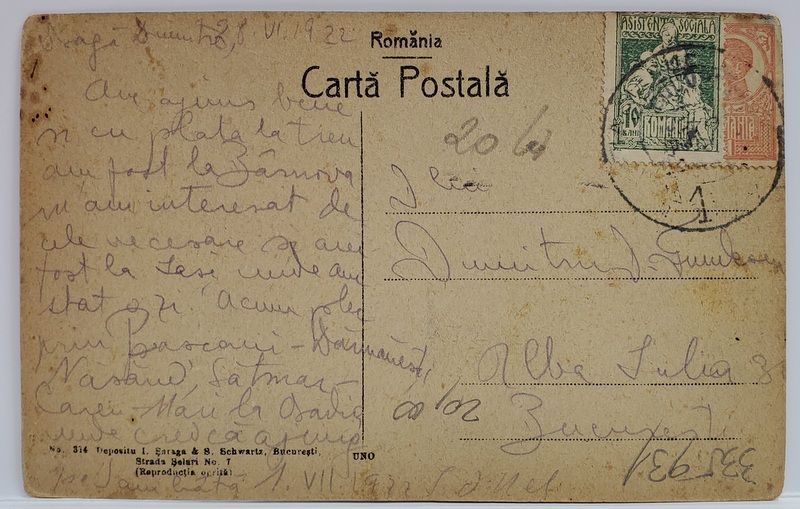 Dragă Dumitre, 28.VI.1922
România
Cartă Postală
ASISTENȚA SOCIALĂ
10
BANI
ROMÂNIA
1
20 lei
Am ajuns bine
și cu plata la tren
am fost la
m'am interesat de
cele necesare și am
fost la Iași unde am
stat o zi. Acum plec
prin Pașcani - Dărmănești,
Năsăud, Satmar -
Carei-Mari la
unde cred că ajung
Dumitru
Alba Iulia 3
București
No. 314 Depositu I. Șaraga & S. Schwartz, București,
Strada Șelari No. 7
(Reproducția oprită)
UNO
Sâmbătă 1 VII 1922
335931